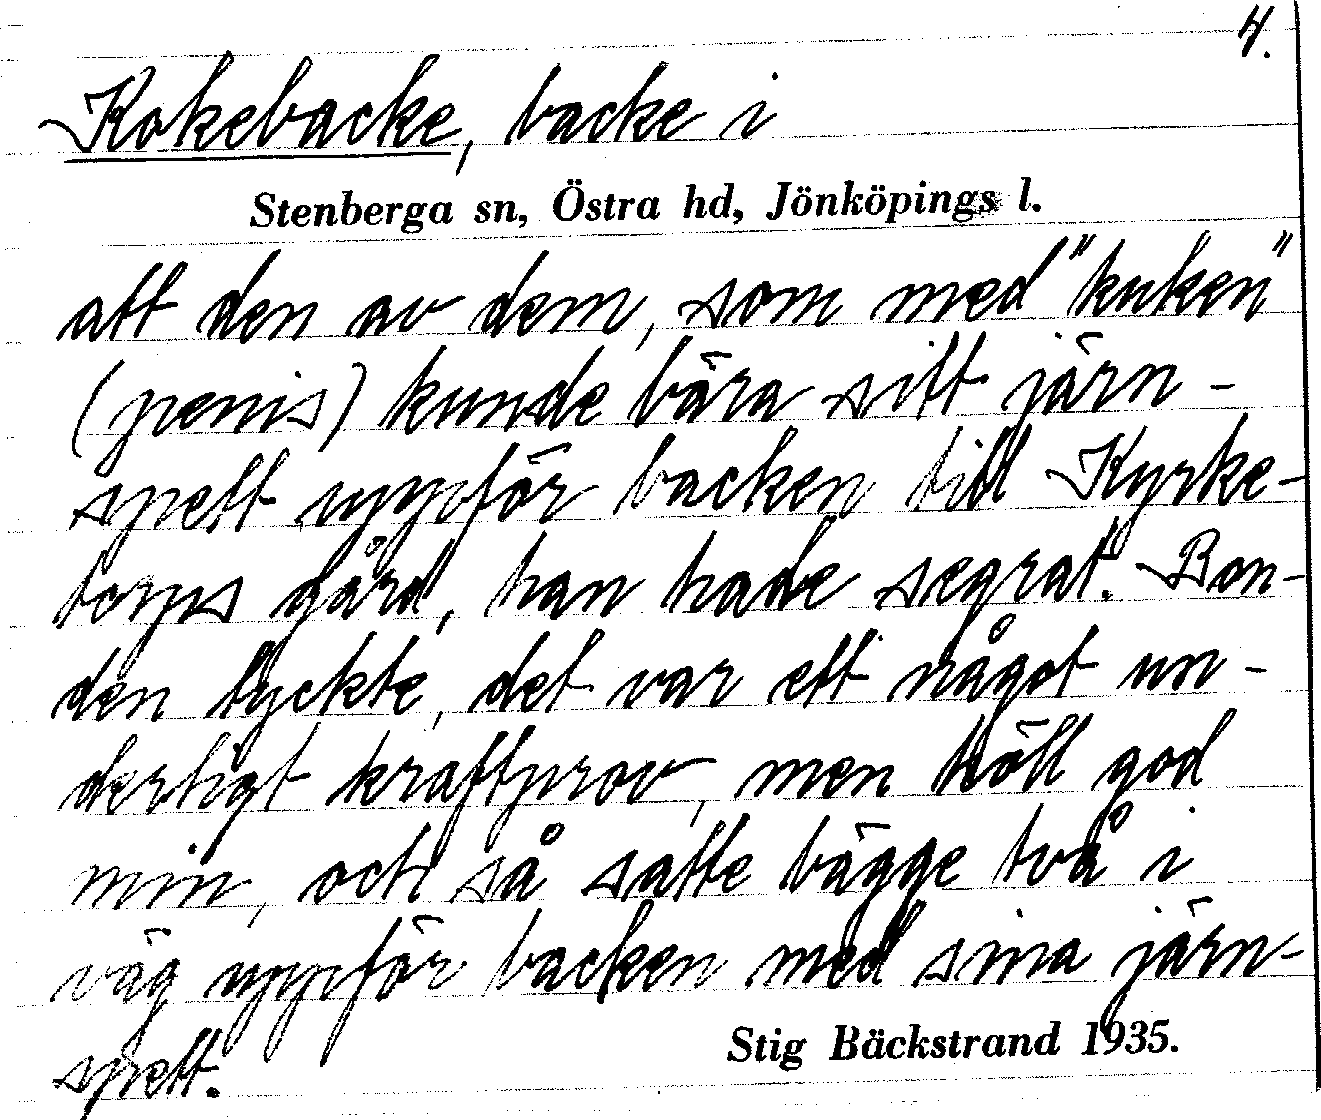 4.
Kokebacke, backe i
Stenberga sn, Östra hd, Jönköpings l.
att den av dem, som med "kuken"
(penis) kunde bära sitt järn-
spett uppför backen till Kyrke-
torps gård, han hade segrat. Bon-
den tyckte, det var ett något un-
derligt kraftprov, men höll god
min, och så satte bägge två i
väg uppför backen med sina järn-
spett.
Stig Bäckstrand 1935.